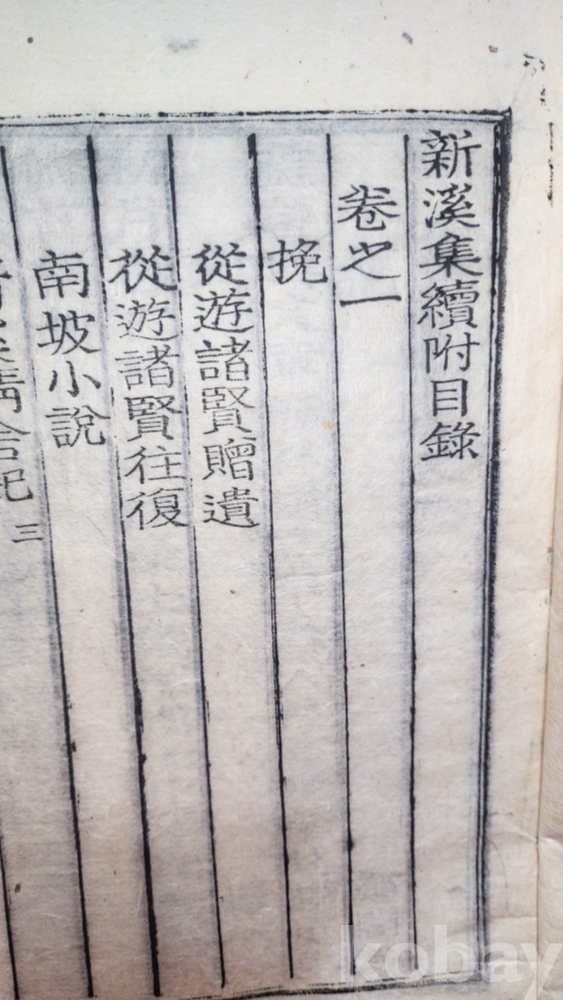 新溪集續附目錄
卷之一
挽
從遊諸賢贈遺
從遊諸賢往復
南坡小說
精舍記 三
kobay